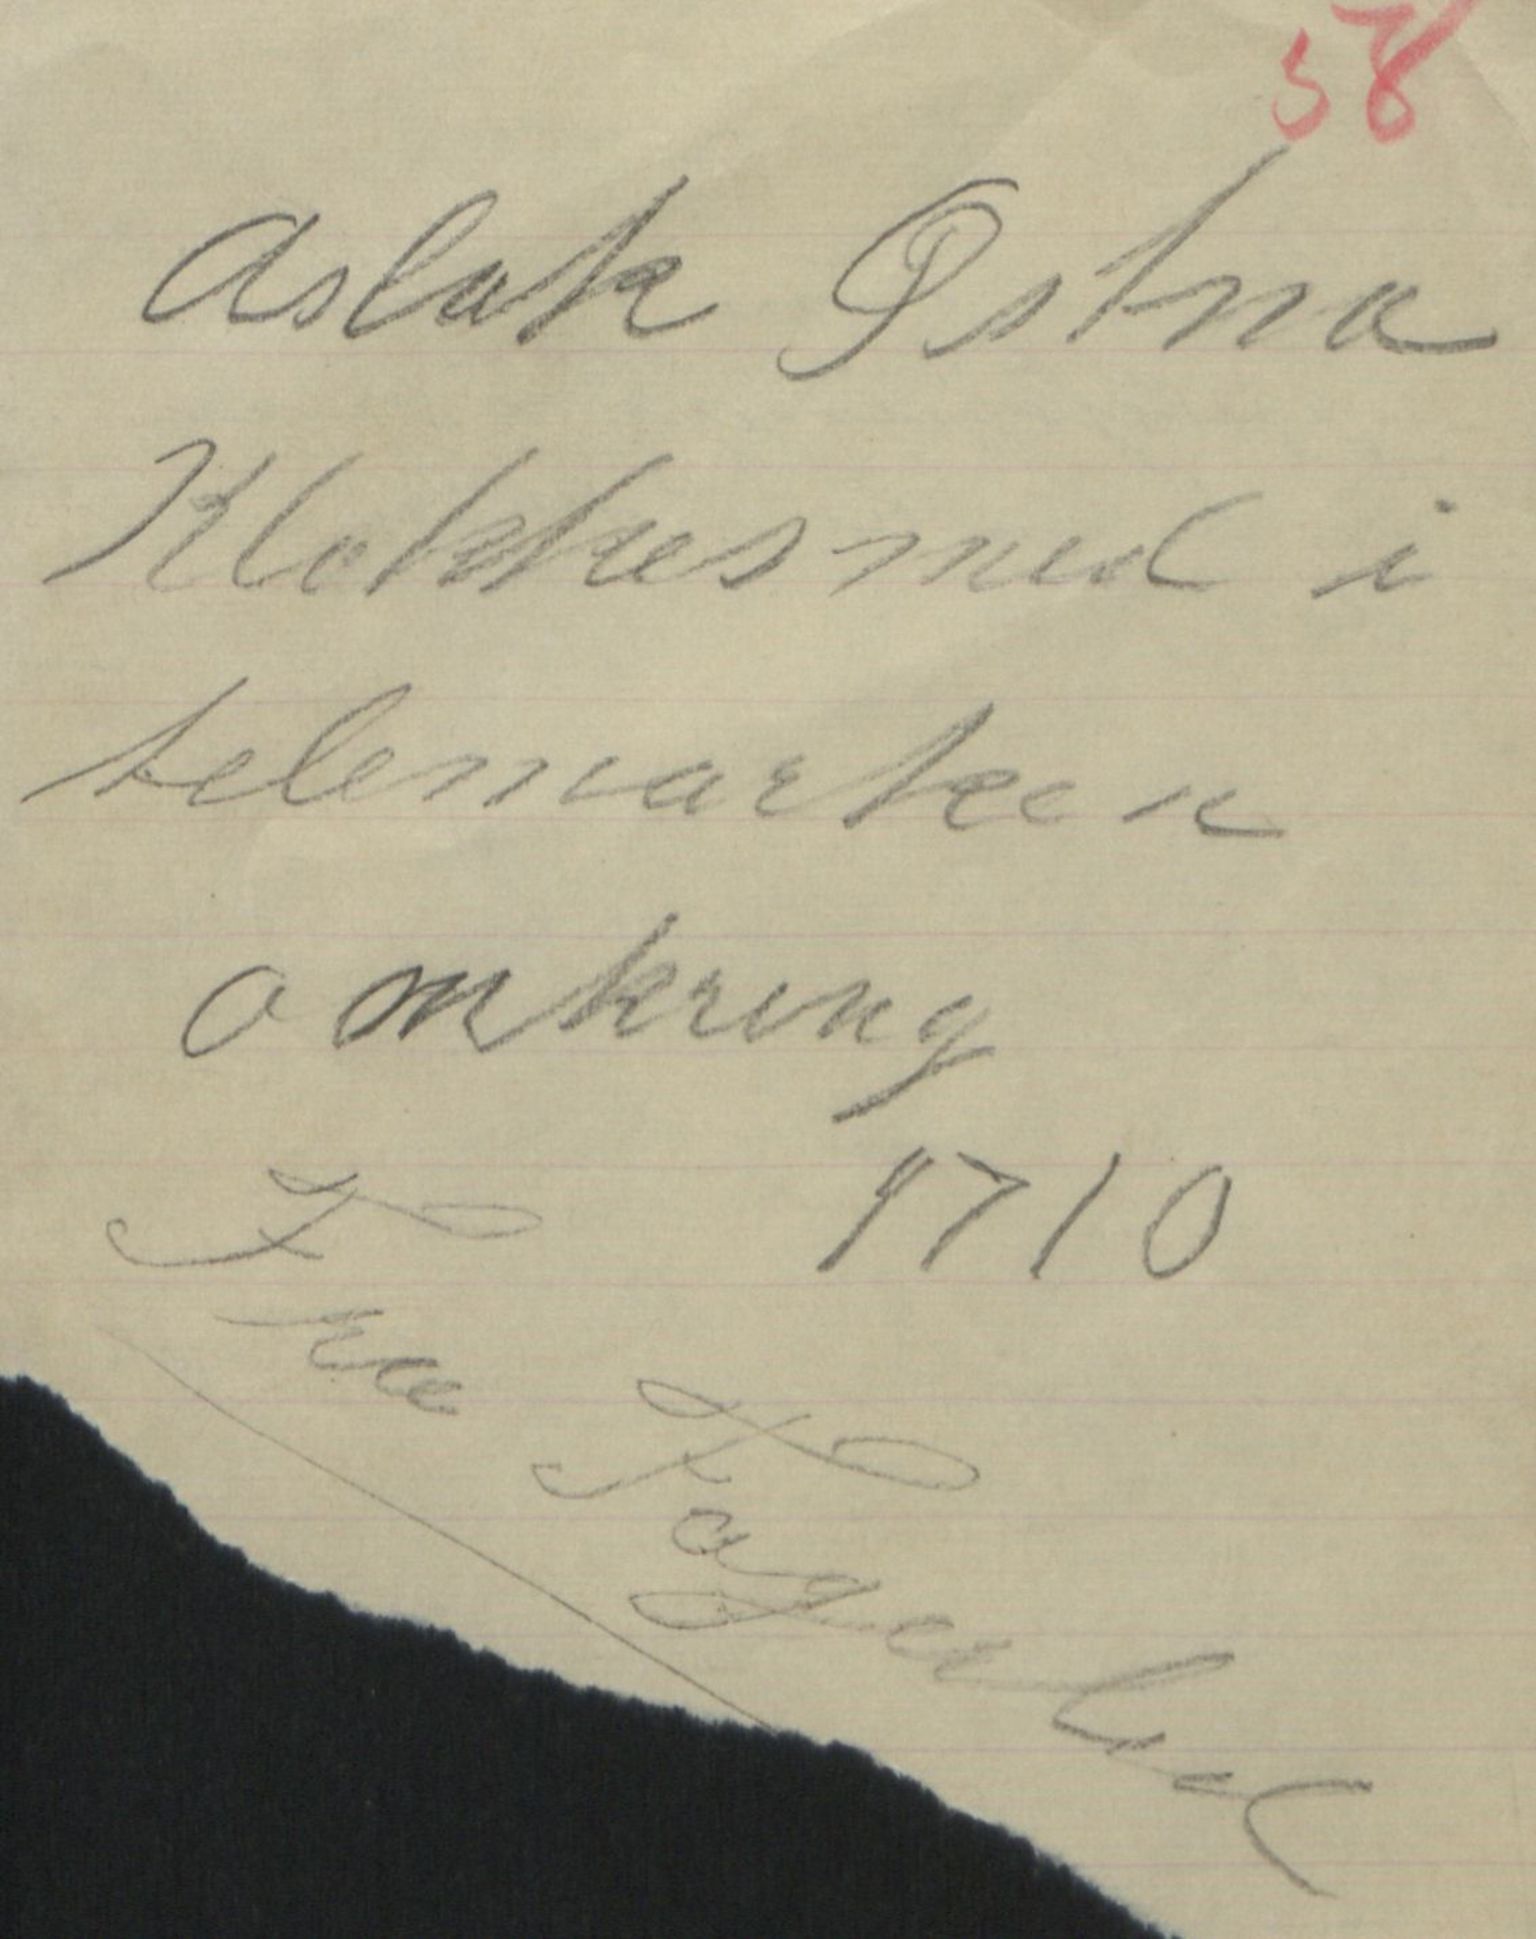 58
Aslak Østna
Klokkesmed i
telemarken
omkring
1710
Fra Fagerlid